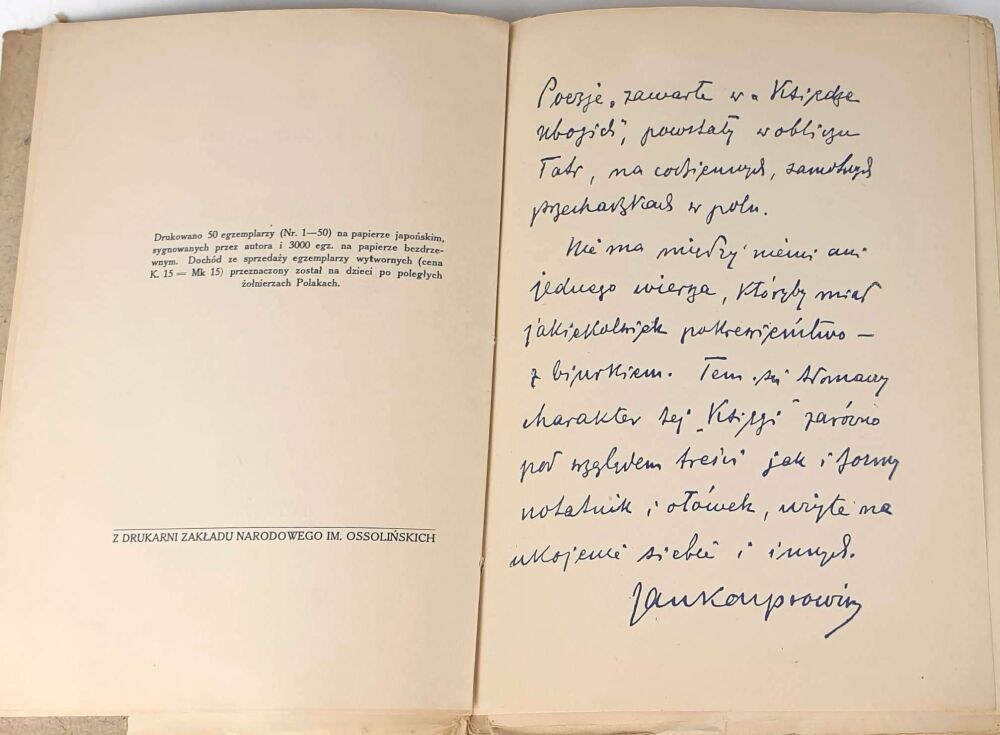 Drukowano 50 egzemplarzy (Nr. 1—50) na papierze japońskim,
sygnowanych przez autora i 3000 egz. na papierze bezdrze-
wnym. Dochód ze sprzedaży egzemplarzy wytwornych (cena
K. 15 = Mk 15) przeznaczony został na dzieci po poległych
żołnierzach Polakach.
Z DRUKARNI ZAKŁADU NARODOWEGO IM. OSSOLIŃSKICH
Poezje, zawarte w „Księdze
ubogich", powstały w obliczu
Tatr, na codziennych, samotnych
przechadzkach w polu.
Nie ma między niemi ani
jednego wiersza, któryby miał
jakiekolwiek pokrewieństwo —
z biurkiem. Tem się tłomaczy
charakter tej „Księgi" zarówno
pod względem treści jak i formy
notatnik i ołówek, użyte na
ukojenie siebie i innych.
Jan Kasprowicz